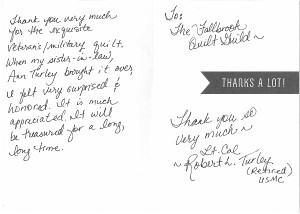 Thank you very much
for the exquisite
Veteran's/military quilt.
When my sister-in-law,
Ann Turley brought it over,
I felt very surprised &
honored. It is much
appreciated. It will
be treasured for a long,
long time.
To:
The Fallbrook
Quilt Guild ~
THANKS A LOT!
Thank you so
very much ~
Lt. Col
~ Robert L. Turley
(Retired)
USMC